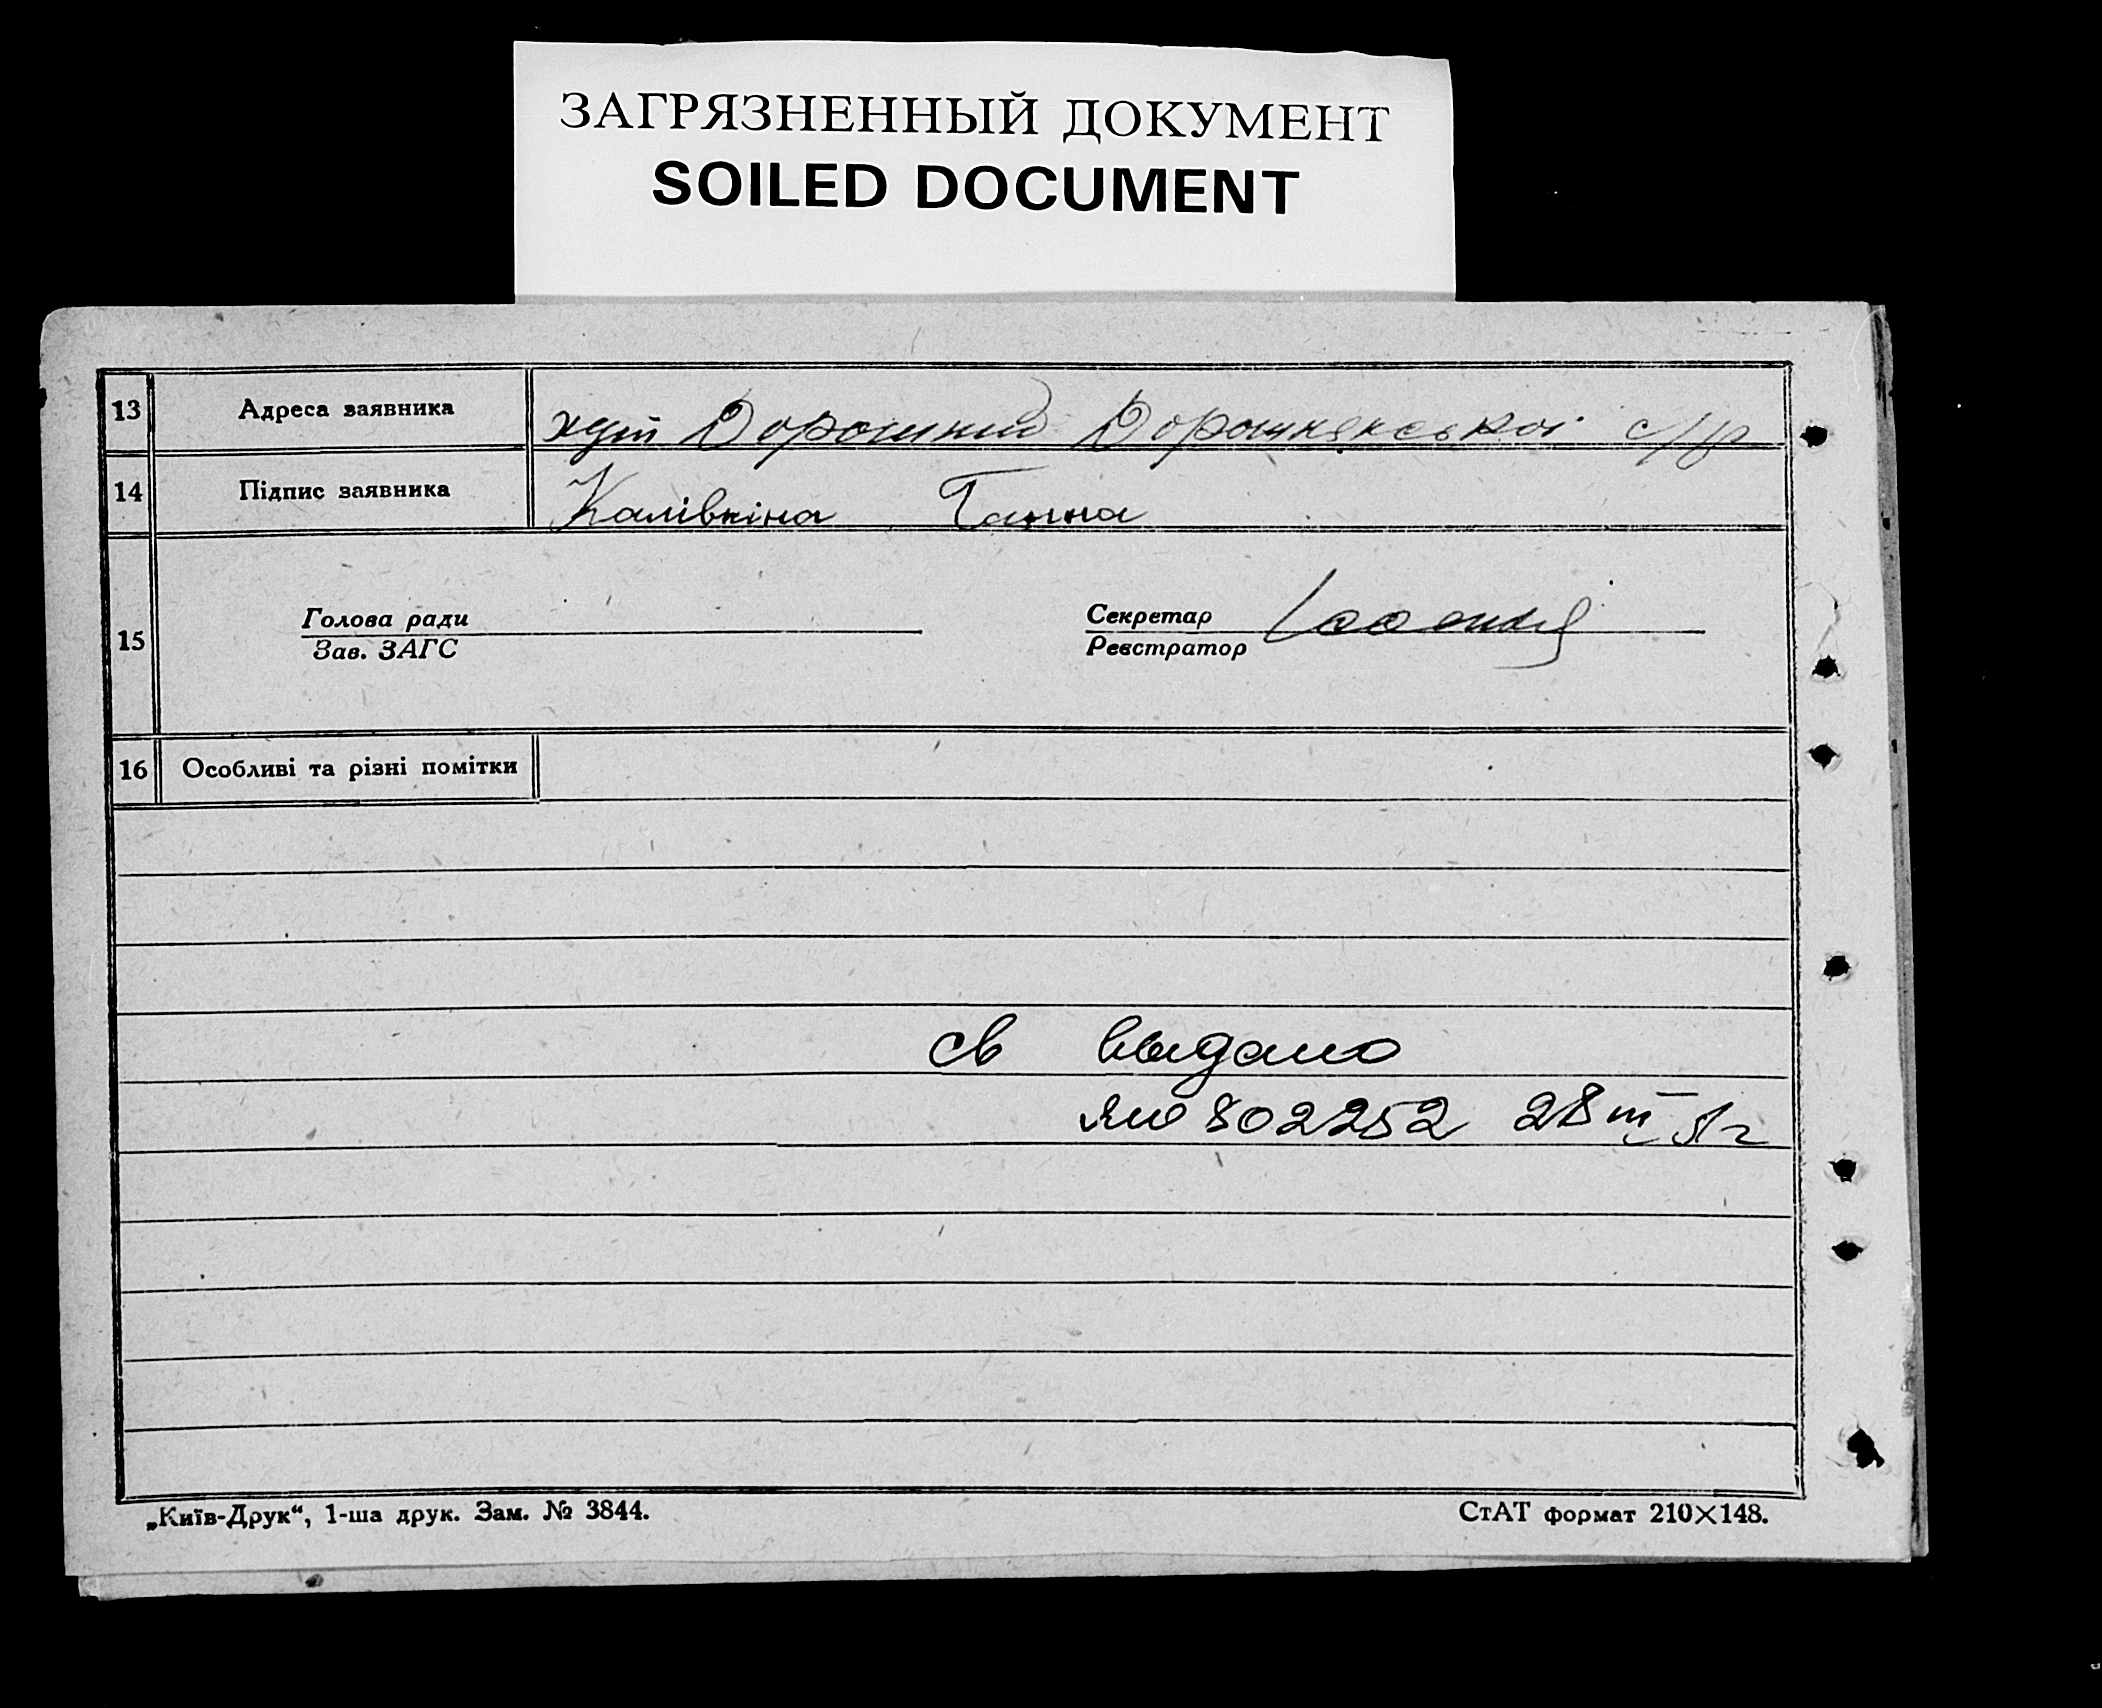 ЗАГРЯЗНЕННЫЙ ДОКУМЕНТ
SOILED DOCUMENT
13 Адреса заявника хут Дорошкив Дорошкевської с/р
14 Підпис заявника Калівкіна Ганна
15 Голова ради Секретар
Зав. ЗАГС Реєстратор
16 Особливі та різні помітки
св выдано
ЯЮ 802252 28 III 51 г
„Київ-Друк“, 1-ша друк. Зам. № 3844. СтАТ формат 210×148.